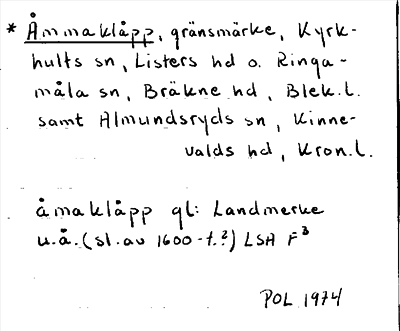 * Åmmaklåpp, gränsmärke, Kyrk-
hults sn, Listers hd o. Ringa-
måla sn, Bräkne hd, Blek.l.
samt Almundsryds sn, Kinne-
valds hd, Kron.l.
åmaklåpp gl: Landmerke
u.å. (sl. av 1600-t.?) LSA F³
POL 1974